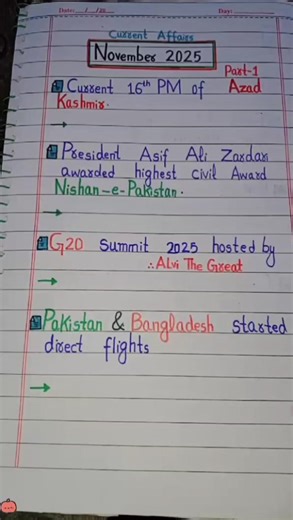 Date: / /20
Day:
Current Affairs
November 2025
Part-1
Current 16th PM of Azad
Kashmir.
→
President Asif Ali Zardari
awarded highest civil Award
Nishan-e-Pakistan.
→
G20 Summit 2025 hosted by
∴ Alvi The Great
→
Pakistan & Bangladesh started
direct flights
→